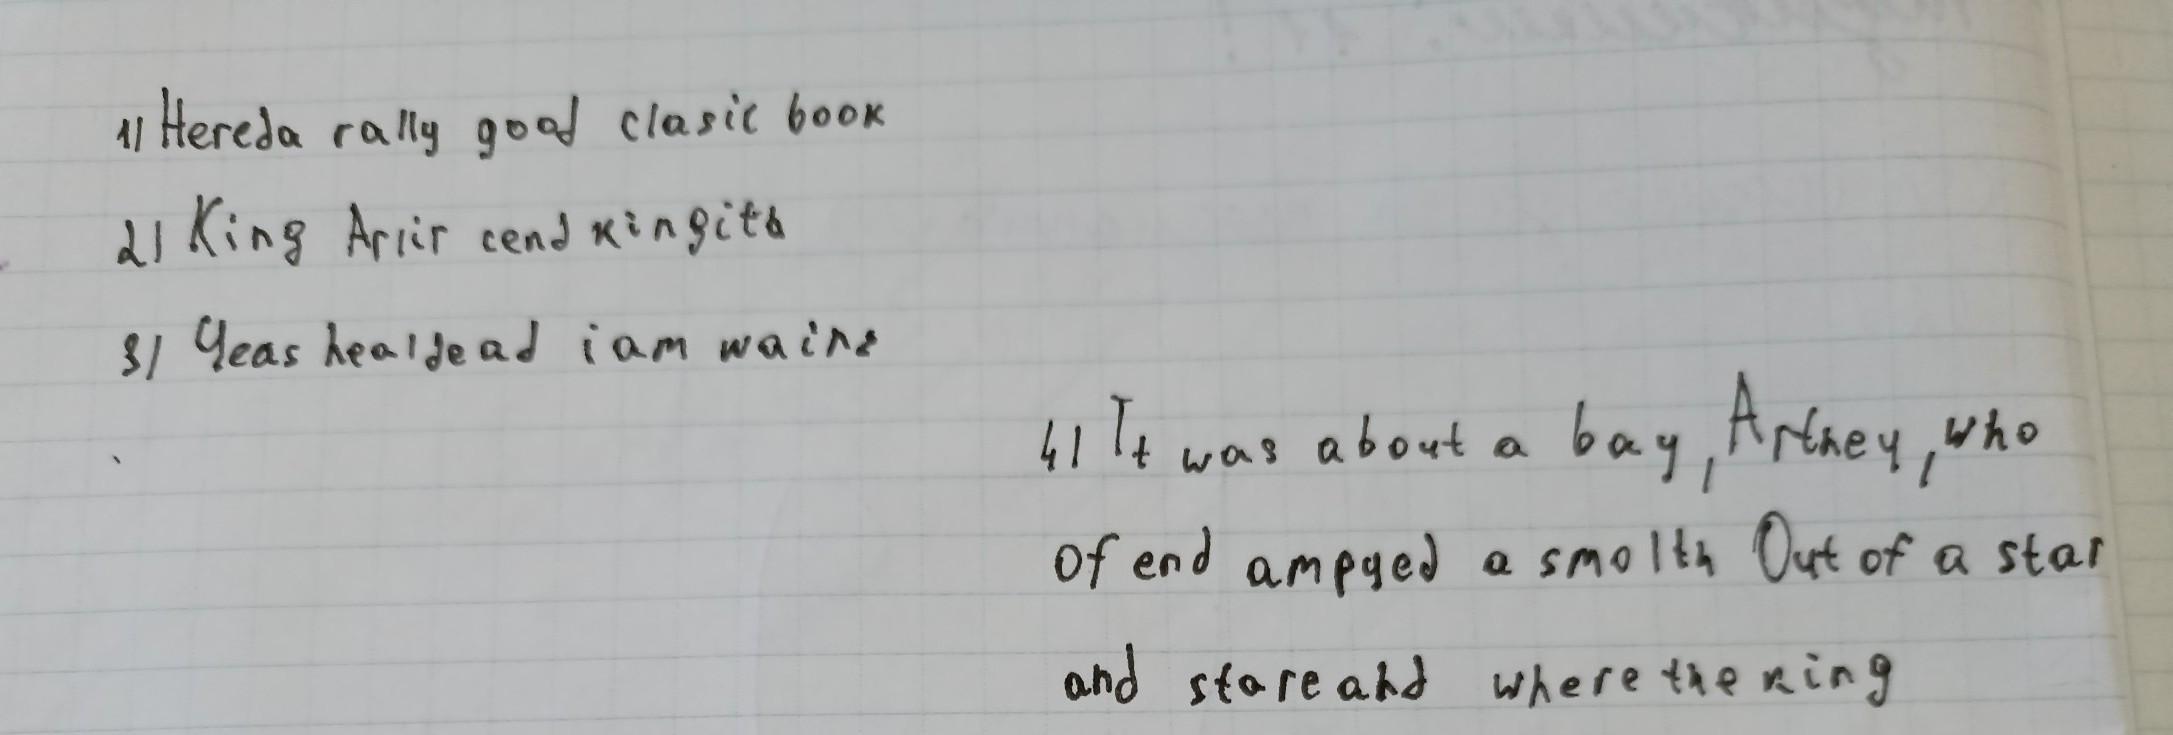 1) Hereda rally good clasic book
2) King Ariir cend kingith
3) Yeas healdead i am waine
4) It was about a bay, Artney, who
of end ampyed a smolth Out of a star
and stareahd where the king